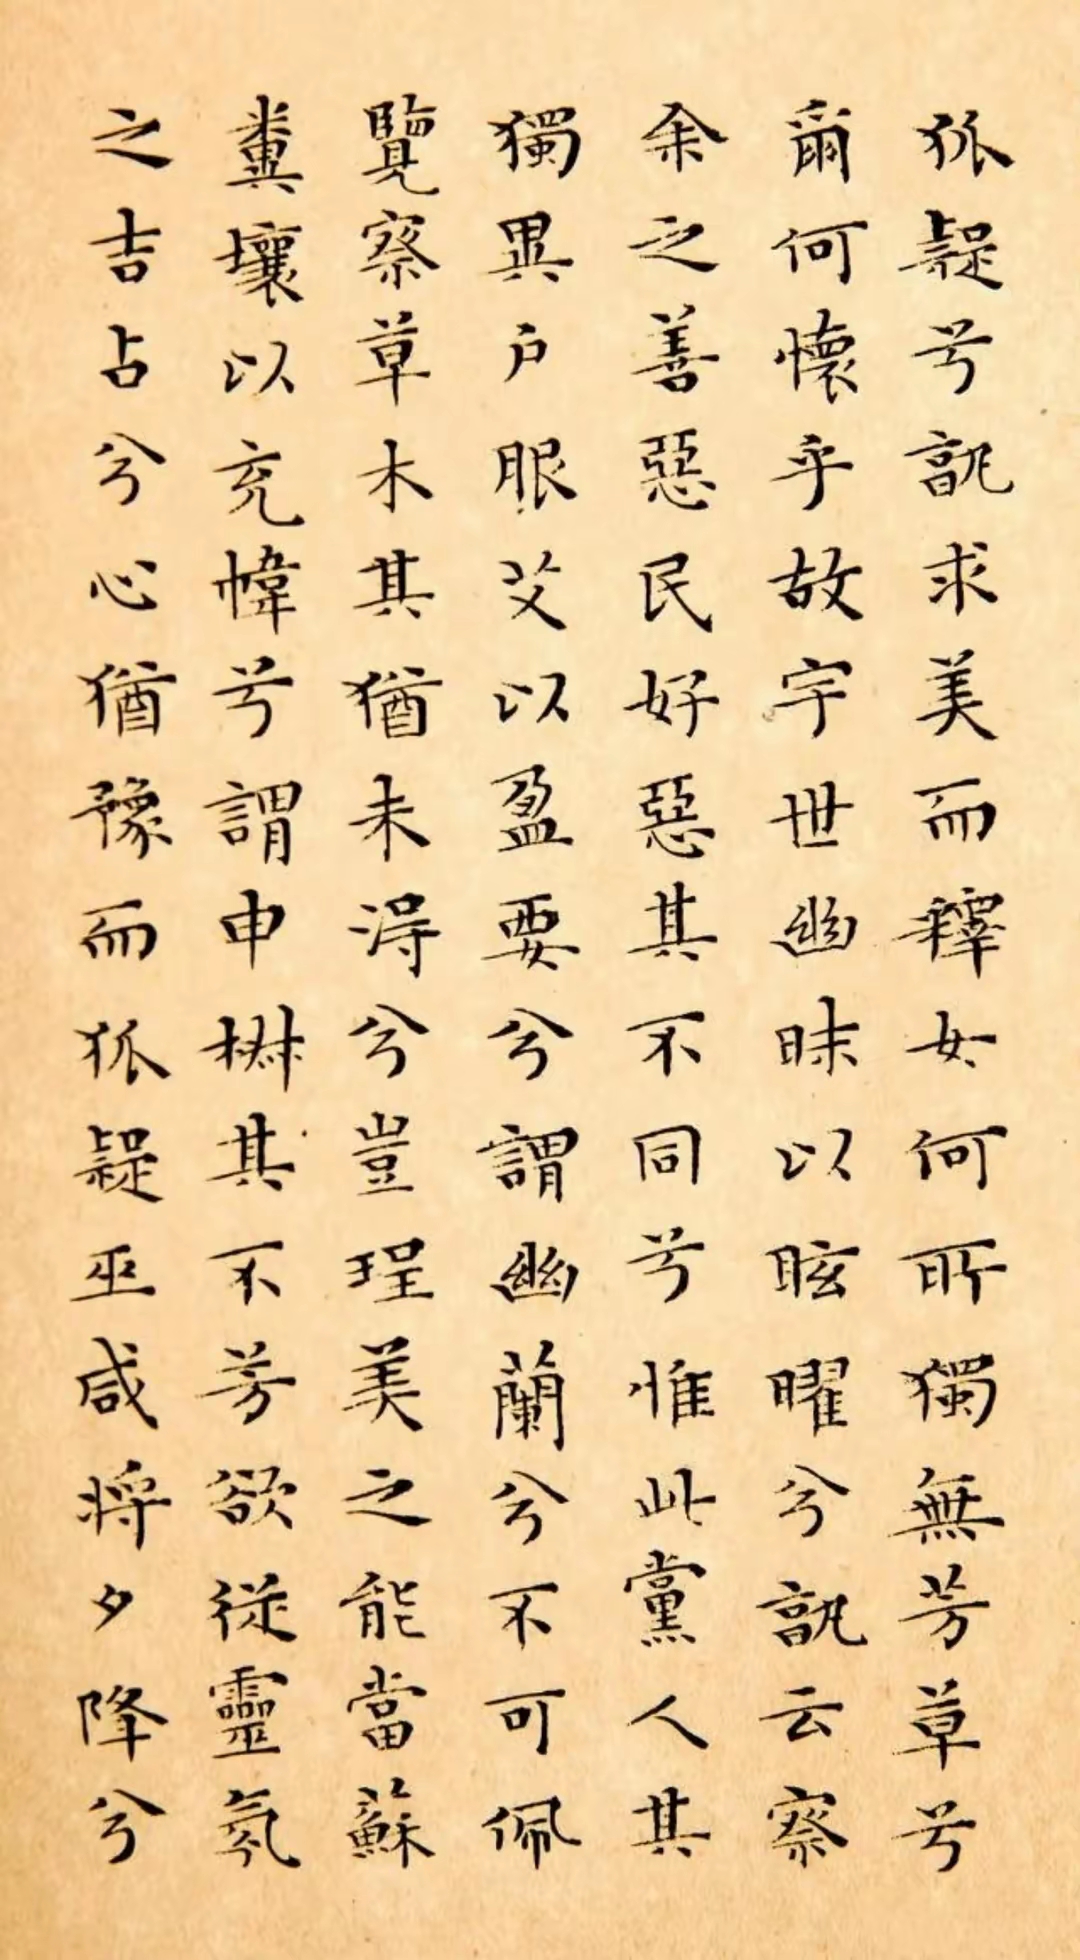 狐疑兮訊求美而釋女何所獨無芳草兮
爾何懷乎故宇世幽昧以眩曜兮訊云察
余之善惡民好惡其不同兮惟此黨人其
獨異户服艾以盈要兮謂幽蘭兮不可佩
覽察草木其猶未得兮豈珵美之能當蘇
糞壤以充幃兮謂申椒其不芳欲從靈氛
之吉占兮心猶豫而狐疑巫咸将夕降兮